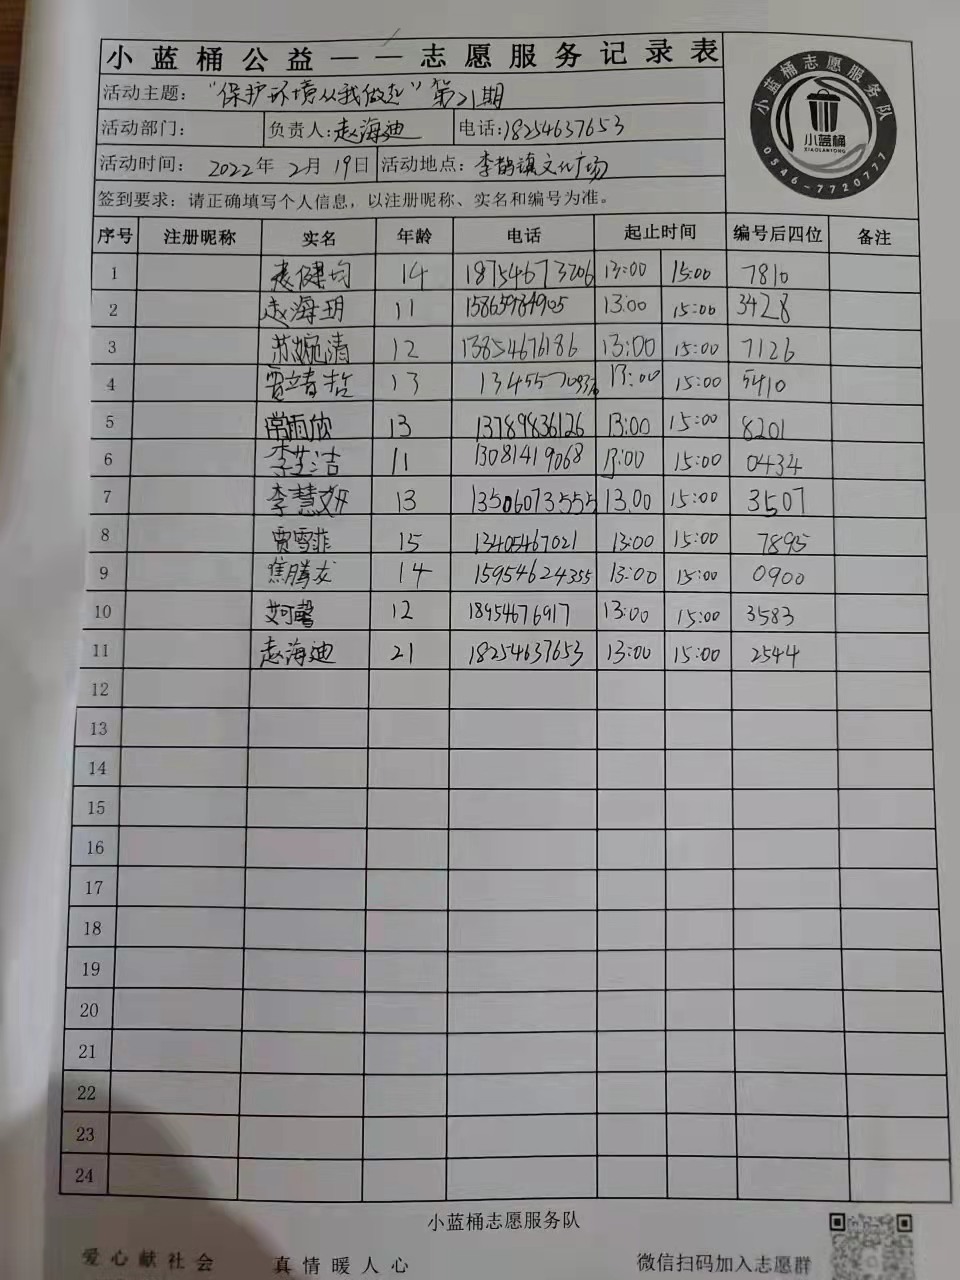 小蓝桶公益——志愿服务记录表
活动主题: "保护环境从我做起"第21期
活动部门: 负责人: 赵海迪 电话: 18254637653
活动时间: 2022年 2月 19日 活动地点: 李鹊镇文化广场
签到要求: 请正确填写个人信息, 以注册昵称、实名和编号为准。
小蓝桶志愿服务队
小蓝桶
XIAOLANTONG
0546-7720777
序号 注册昵称 实名 年龄 电话 起止时间 编号后四位 备注
1 健均 14 18754673206 13:00 15:00 7810
2 赵海玥 11 13:00 15:00 3428
3 苏婉清 12 13854676186 13:00 15:00 7126
4 贾 13 13:00 15:00 5410
5 常雨欣 13 13789836126 13:00 15:00 8201
6 李芝洁 11 13081419068 13:00 15:00 0434
7 李慧妍 13 13506073555 13:00 15:00 3507
8 贾雪菲 15 13405467021 13:00 15:00 7895
9 焦腾龙 14 15954624355 13:00 15:00 0900
10 艾可馨 12 18954676917 13:00 15:00 3583
11 赵海迪 21 18254637653 13:00 15:00 2544
12
13
14
15
16
17
18
19
20
21
22
23
24
小蓝桶志愿服务队
爱心献社会 真情暖人心 微信扫码加入志愿群